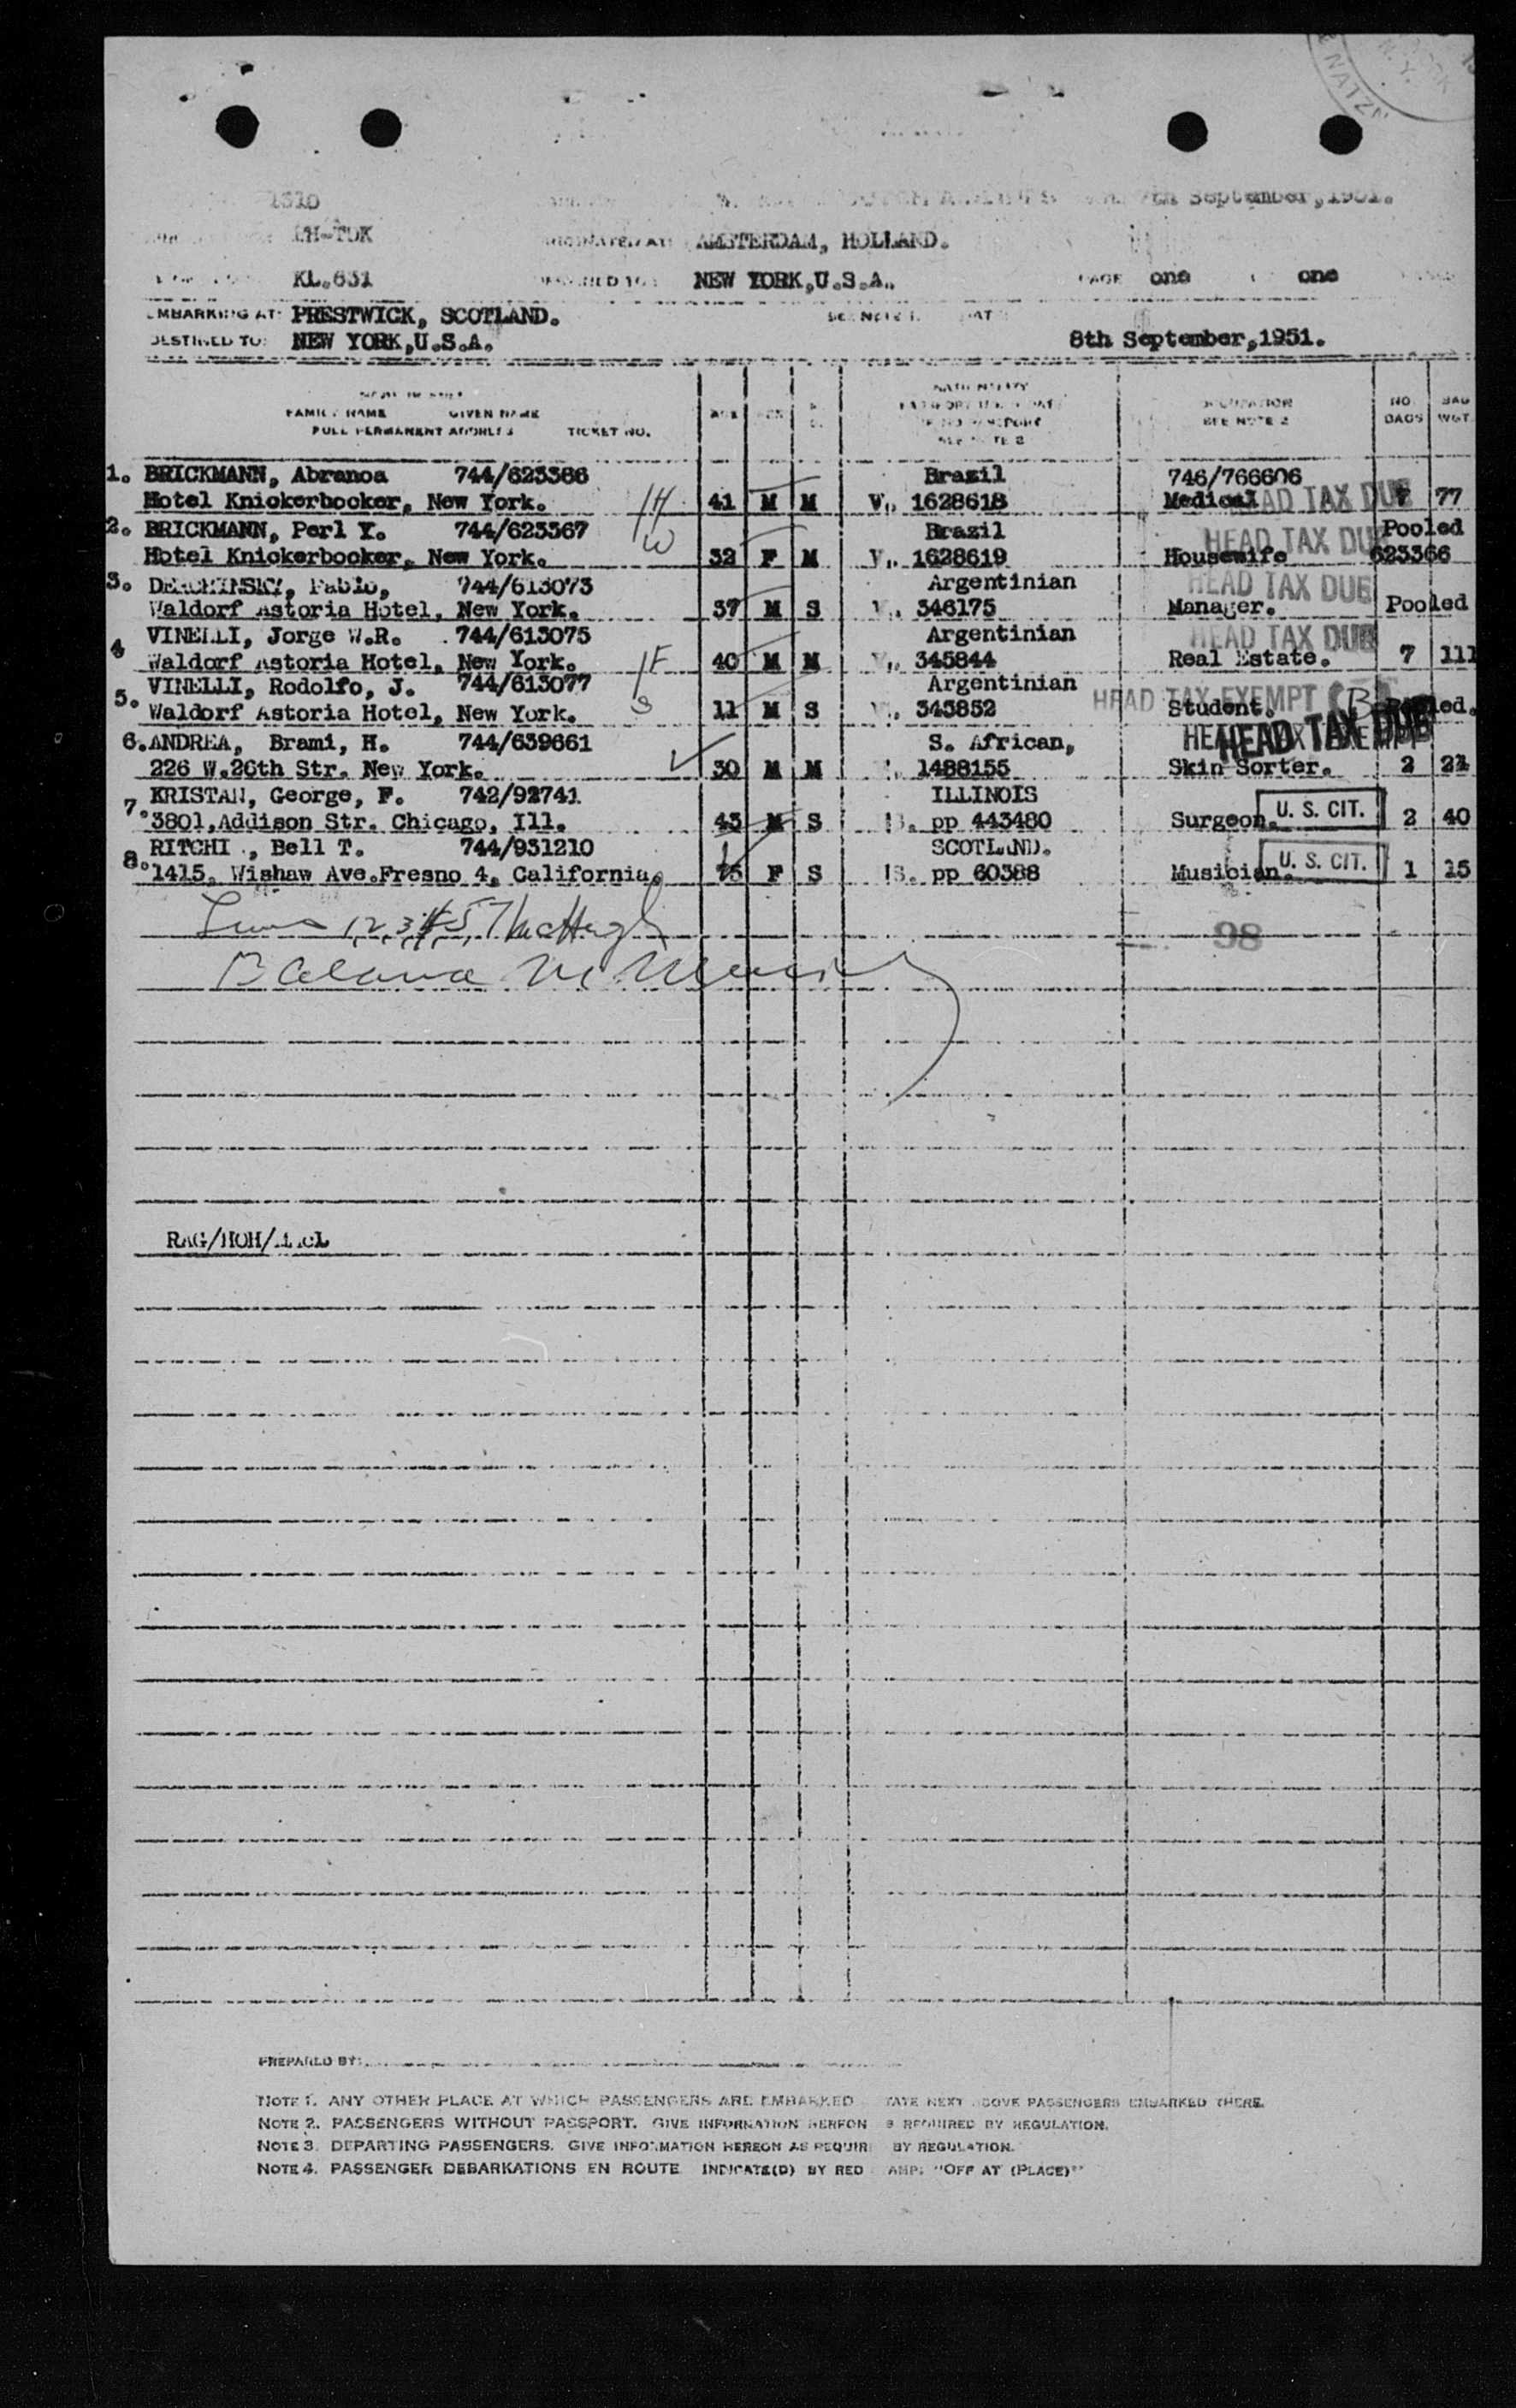 September, 1951.
AMSTERDAM, HOLLAND.
KL.631 NEW YORK,U.S.A. PAGE one one
EMBARKING AT: PRESTWICK, SCOTLAND.
DESTINED TO: NEW YORK,U.S.A. 8th September,1951.
FAMILY NAME GIVEN NAME AGE SEX OCCUPATION NO. BAG
FULL PERMANENT ADDRESS TICKET NO. SEE NOTE 2 BAGS WGT.
1. BRICKMANN, Abranoa 744/623366 Brazil 746/766606
Hotel Knickerbocker, New York. H 41 M M V. 1628618 Medical HEAD TAX DUE 77
2. BRICKMANN, Perl Y. 744/623367 W Brazil HEAD TAX DUE Pooled
Hotel Knickerbocker, New York. 32 F M V. 1628619 Housewife 623366
3. Fabio, 744/613073 Argentinian HEAD TAX DUE
Waldorf Astoria Hotel, New York. 37 M S V. 346175 Manager. Pooled
4 VINELLI, Jorge W.R. 744/613075 Argentinian HEAD TAX DUE
Waldorf Astoria Hotel, New York. F 40 M M V. 345844 Real Estate. 7 111
5. VINELLI, Rodolfo, J. 744/613077 S Argentinian HEAD TAX EXEMPT
Waldorf Astoria Hotel, New York. 11 M S 345852 Student. Pooled.
6. ANDREA, Brami, H. 744/639661 S. African, HEAD TAX DUE
226 W.26th Str. New York. 30 M M 1488155 Skin Sorter. 2 21
7. KRISTAN, George, F. 742/92741 ILLINOIS
3801,Addison Str. Chicago, Ill. 43 M S pp 443480 Surgeon. U. S. CIT. 2 40
8. RITCHI , Bell T. 744/931210 SCOTLAND.
1415, Wishaw Ave.Fresno 4, California. F S pp 60388 Musician. U. S. CIT. 1 15
98
PREPARED BY:
NOTE 1. ANY OTHER PLACE AT WHICH PASSENGERS ARE EMBARKED STATE NEXT ABOVE PASSENGERS EMBARKED THERE.
NOTE 2. PASSENGERS WITHOUT PASSPORT. GIVE INFORMATION HEREON AS REQUIRED BY REGULATION.
NOTE 3. DEPARTING PASSENGERS. GIVE INFORMATION HEREON AS REQUIR BY REGULATION.
NOTE 4. PASSENGER DEBARKATIONS EN ROUTE INDICATE(D) BY RED AMP: "OFF AT (PLACE)"